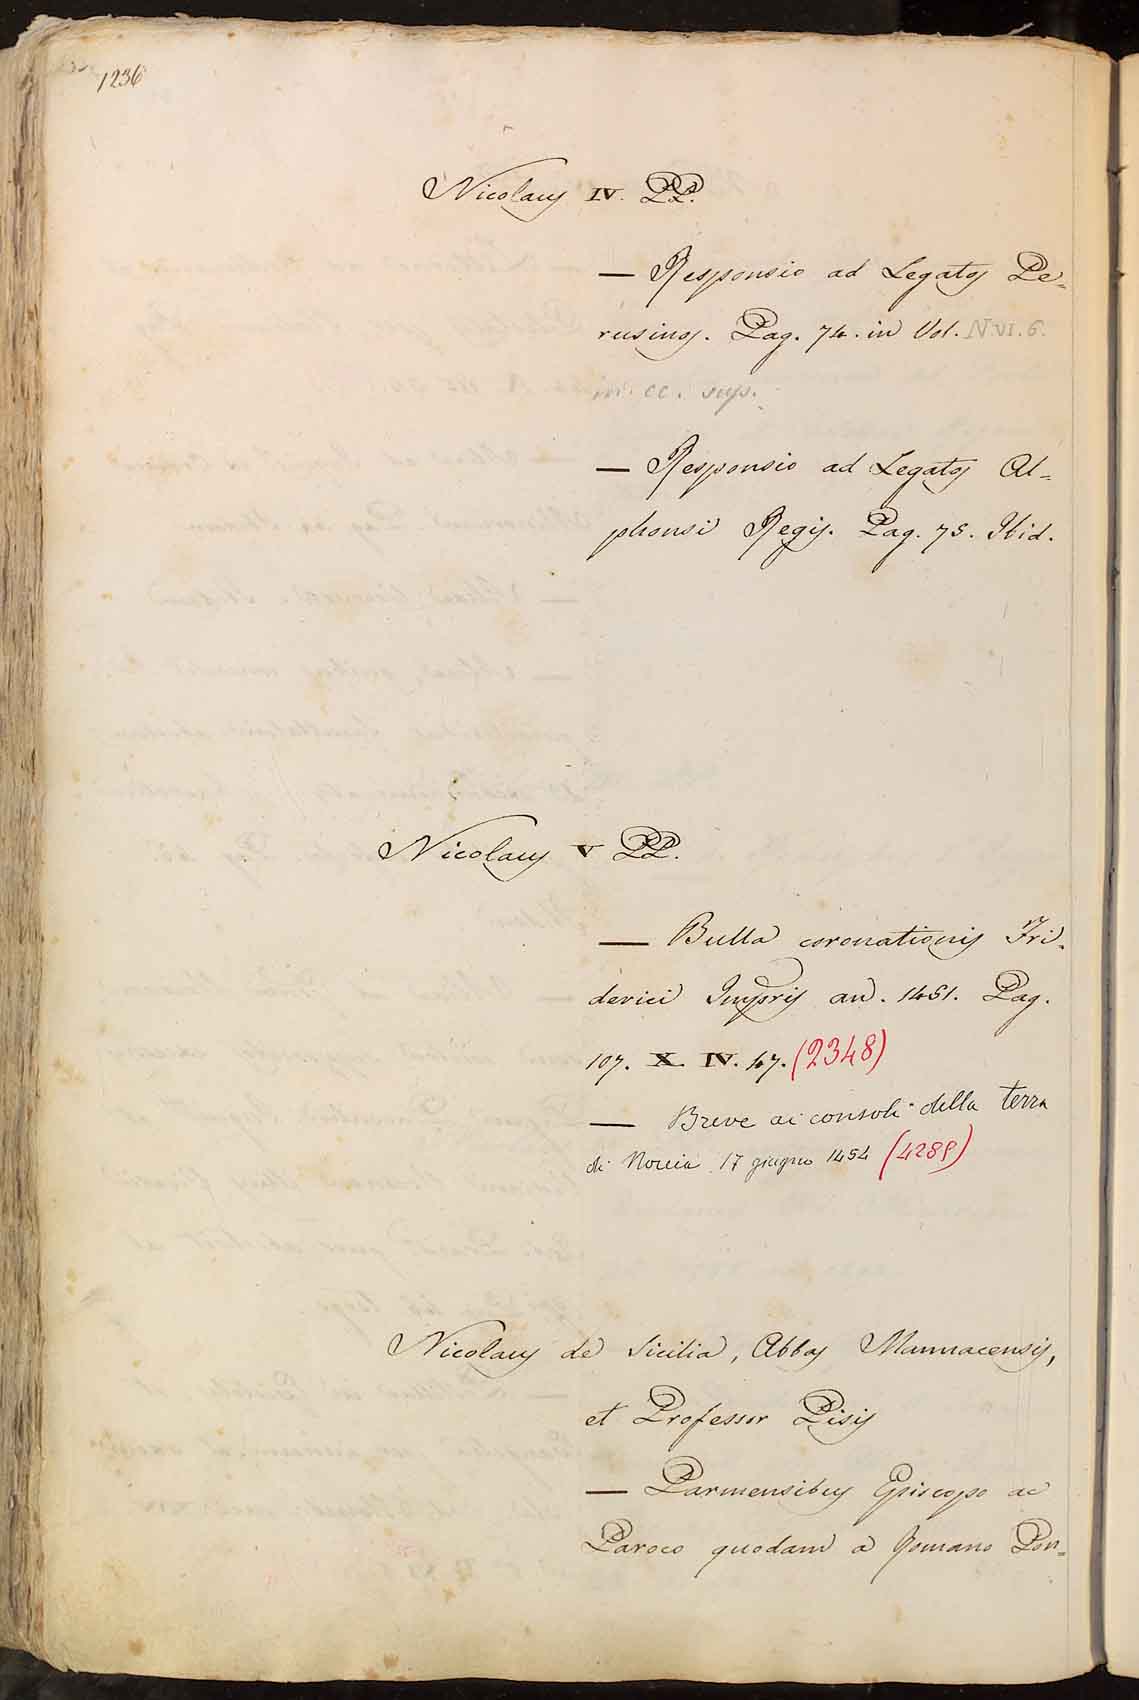 1236
Nicolaus IV. PP.
— Responsio ad Legatos Pe=
rusinos. Pag. 74. in Vol. N. VI. 6.
in cc. sup.
— Responsio ad Legatos Al=
phonsi Regis. Pag. 75. Ibid.
Nicolaus V PP.
— Bulla coronationis Fri=
derici Impris an. 1451. Pag.
107. X. IV. 47. (2348)
— Breve ai consoli della terra
di Norcia 17 giugno 1454 (4289)
Nicolaus de Sicilia, Abbas Mannacensis,
et Professor Pisis
— Parmensibus Episcopo ac
Paroco quodam a Romano Pon=